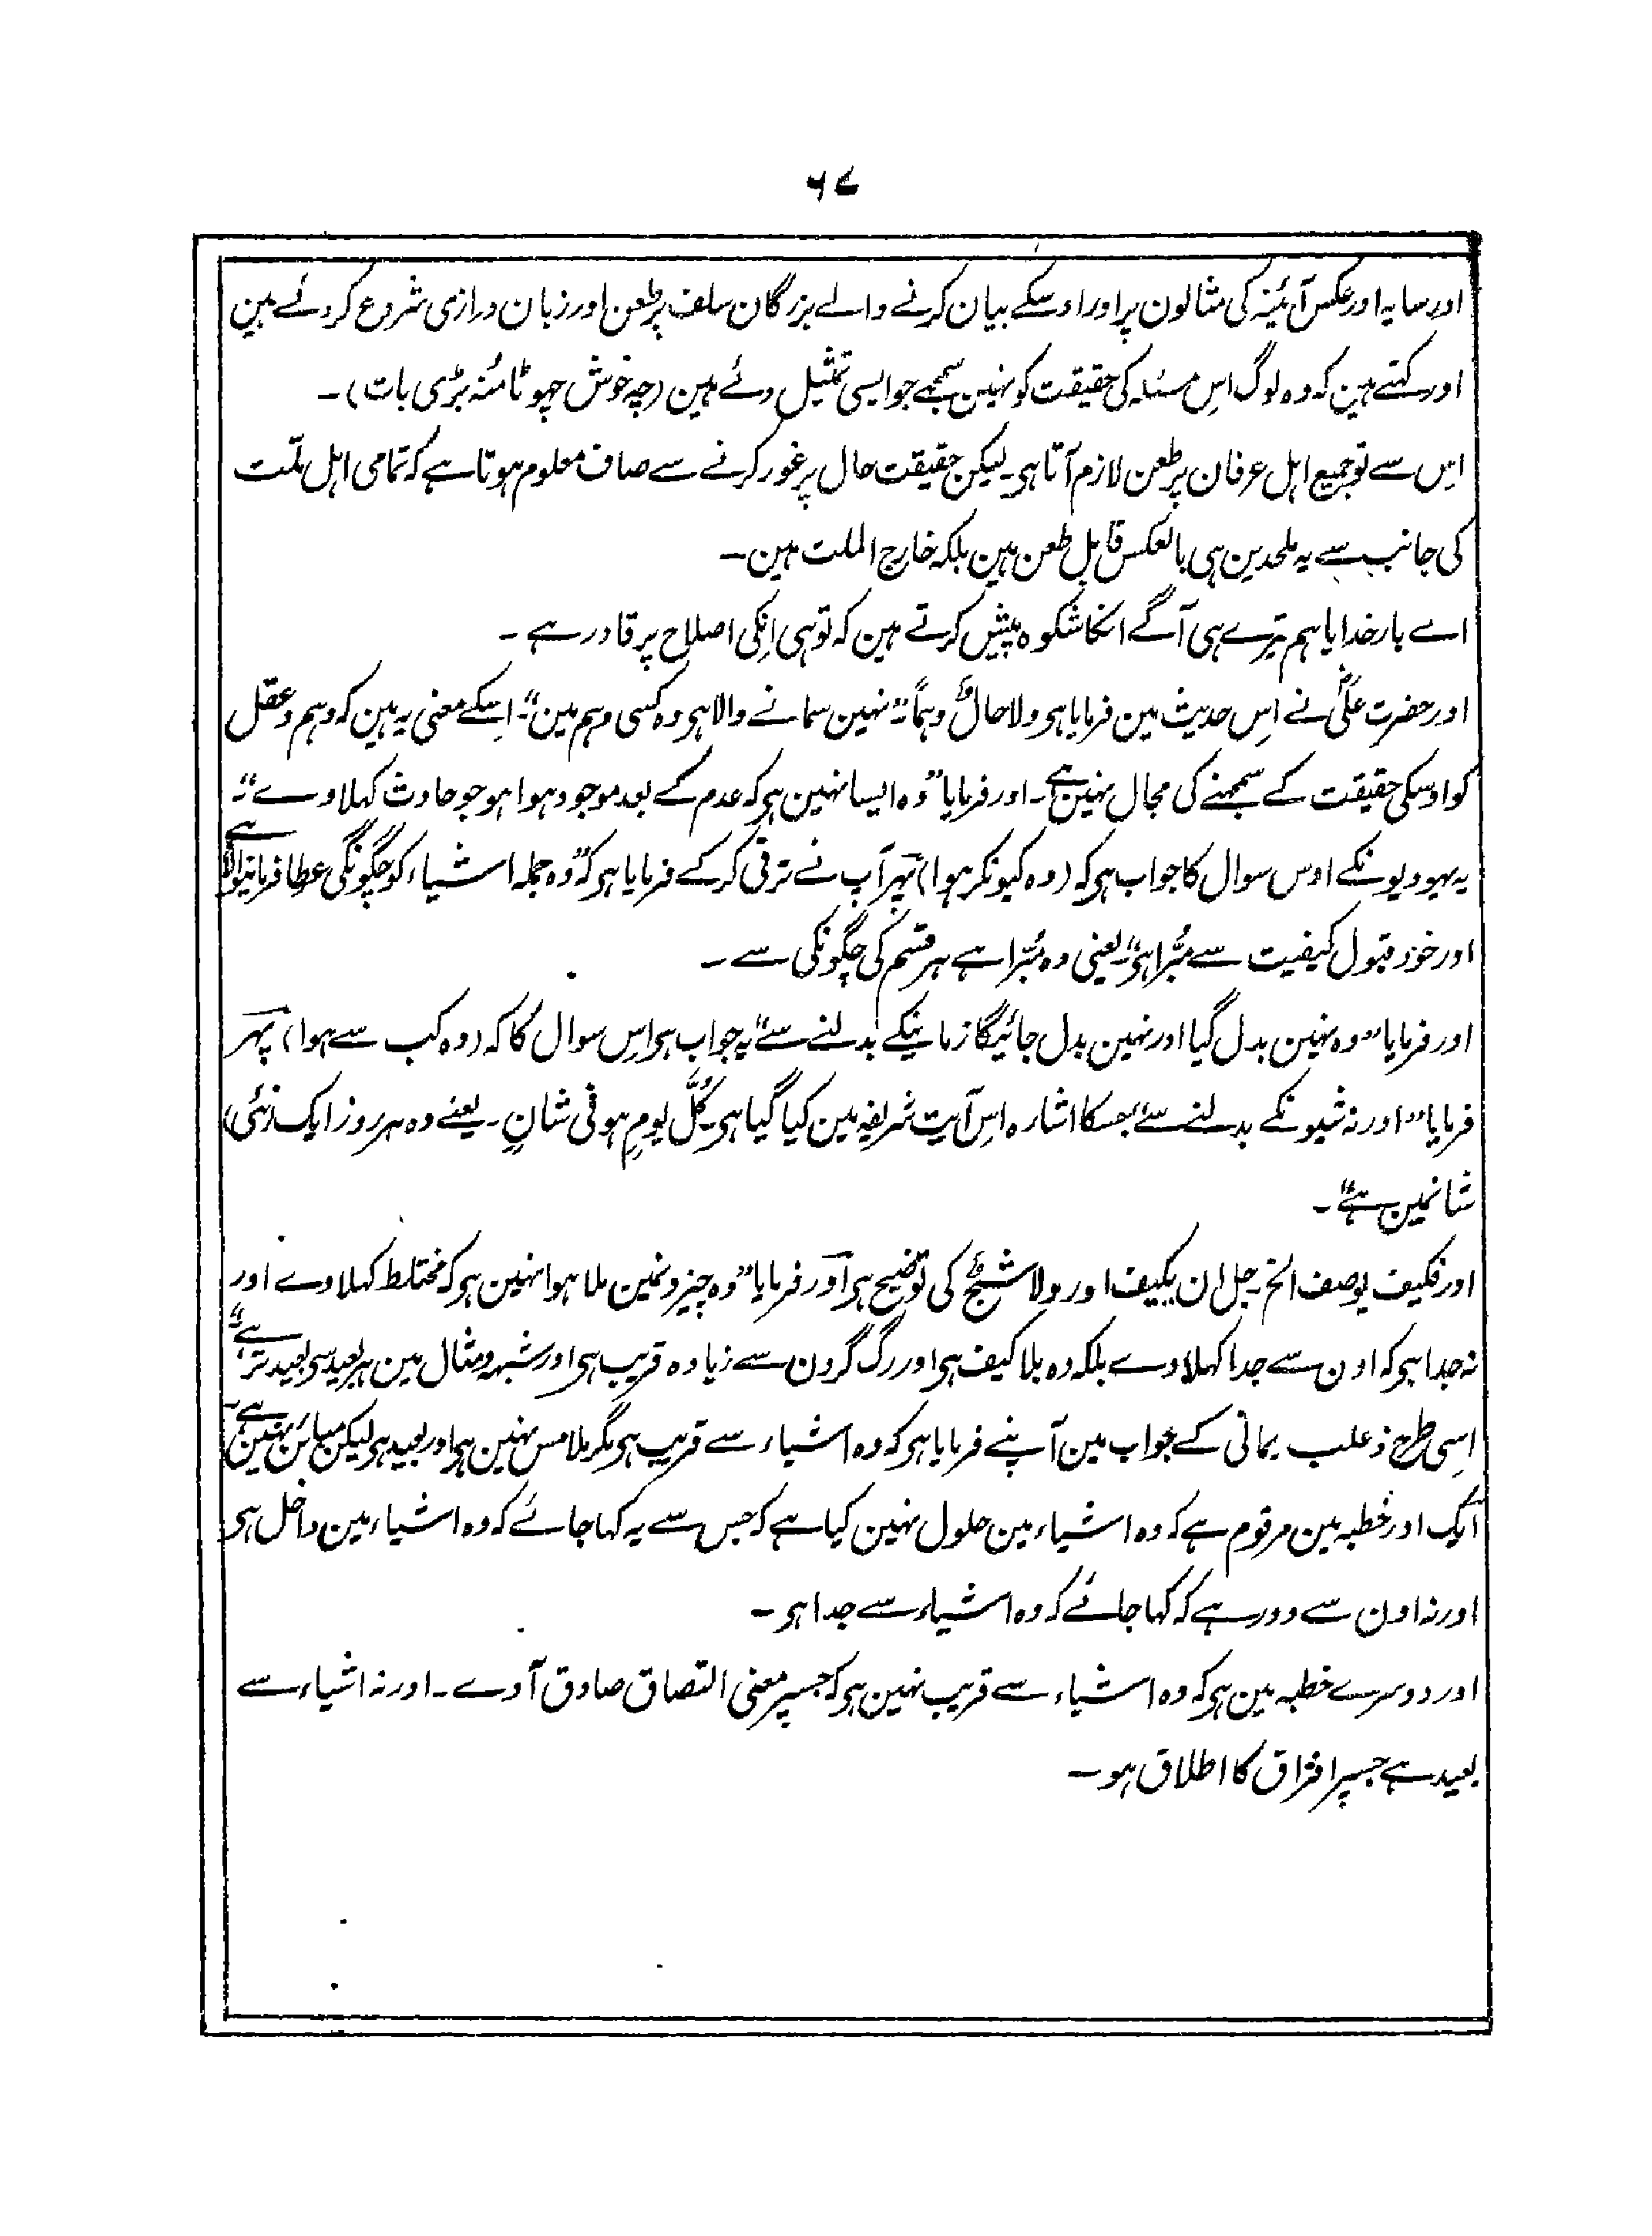 ۶۷
اور سایہ اور عکس آئینہ کی مثالون پر اور اوسکے بیان کرنے والے بزرگان سلف پر طعن اور زبان درازی شروع کردئے ہین
اور کہتے ہین کہ وہ لوگ اِس مسئلہ کی حقیقت کو نہین سمجھے جو ایسی تمثیل دئے ہین (چہ خوش چھوٹا مُنہ بڑی بات)۔
اِس سے تو جمیع اہل عرفان پر طعن لازم آتا ہی۔ لیکن حقیقت حال پر غور کرنے سے صاف معلوم ہوتا ہے کہ تمامی اہل ملّت
کی جانب سے یہ ملحدین ہی بالعکس قابل طعن ہین بلکہ خارج الملت ہین۔
اے بار خدایا ہم تیرے ہی آگے انکا شکوہ پیش کرتے ہین کہ تو ہی اِنکی اصلاح پر قادر ہے۔
اور حضرت علیؓ نے اِس حدیث مین فرمایا ہی ولا حالٌّ وہماً۔ "نہین سمانے والا ہی وہ کسی وہم مین"۔ اِسکے معنی یہ ہین کہ وہم و عقل
کو اوسکی حقیقت کے سمجھنے کی مجال نہین ہے۔ اور فرمایا "وہ ایسا نہین ہی کہ عدم کے بعد موجود ہوا ہو جو حادث کہلاوے"۔
یہ یہودیونکے اوس سوال کا جواب ہی کہ (وہ کیونکر ہوا) پھر آپ نے ترقی کرکے فرمایا ہی کہ "وہ جملہ اشیاء کو چگونگی عطا فرمانیوالا ہے
اور خود قبول کیفیت سے مبُرّا ہی" یعنی وہ مبُرّا ہے ہر قسم کی چگونگی سے۔
اور فرمایا "وہ نہین بدل گیا اور نہین بدل جائیگا زمانیکے بدلنے سے" یہ جواب ہی اِس سوال کا کہ (وہ کب سے ہوا) پھر
فرمایا "اور نہ شیونکے بدلنے سے" جسکا اشارہ اِس آیت شریفہ مین کیا گیا ہی۔ کُلَّ یومٍ ہو فی شانٍ۔ یعنے وہ ہر روز ایک (نئی)
شانمین ہے"۔
اور فکیف یوصف الخ۔ جل ان یکیف اور ولا شبحٌ کی توضیح ہی اور فرمایا "وہ چیزونمین ملا ہوا نہین ہی کہ مختلط کہلاوے اور
نہ جدا ہی کہ اون سے جدا کہلاوے بلکہ وہ بلا کیف ہی اور رگ گردن سے زیادہ قریب ہی اور شبہ و مثال مین ہر بعید سی بعید تر ہے"
اِسی طرح ذعلب یمانی کے جواب مین آپنے فرمایا ہی کہ وہ اشیاء سے قریب ہی مگر ملامس نہین ہی اور بعید ہی لیکن مبائن نہین ہے۔
ایک اور خطبہ مین مرقوم ہے کہ وہ اشیاء مین حلول نہین کیا ہے کہ جس سے یہ کہا جائے کہ وہ اشیاء مین داخل ہی
اور نہ اون سے دور ہے کہ کہا جائے کہ وہ اشیاء سے جدا ہی۔
اور دوسرے خطبہ مین ہی کہ وہ اشیاء سے قریب نہین ہی کہ جسپر معنی التصاق صادق آوے۔ اور نہ اشیاء سے
بعید ہے جسپر افتراق کا اطلاق ہو۔